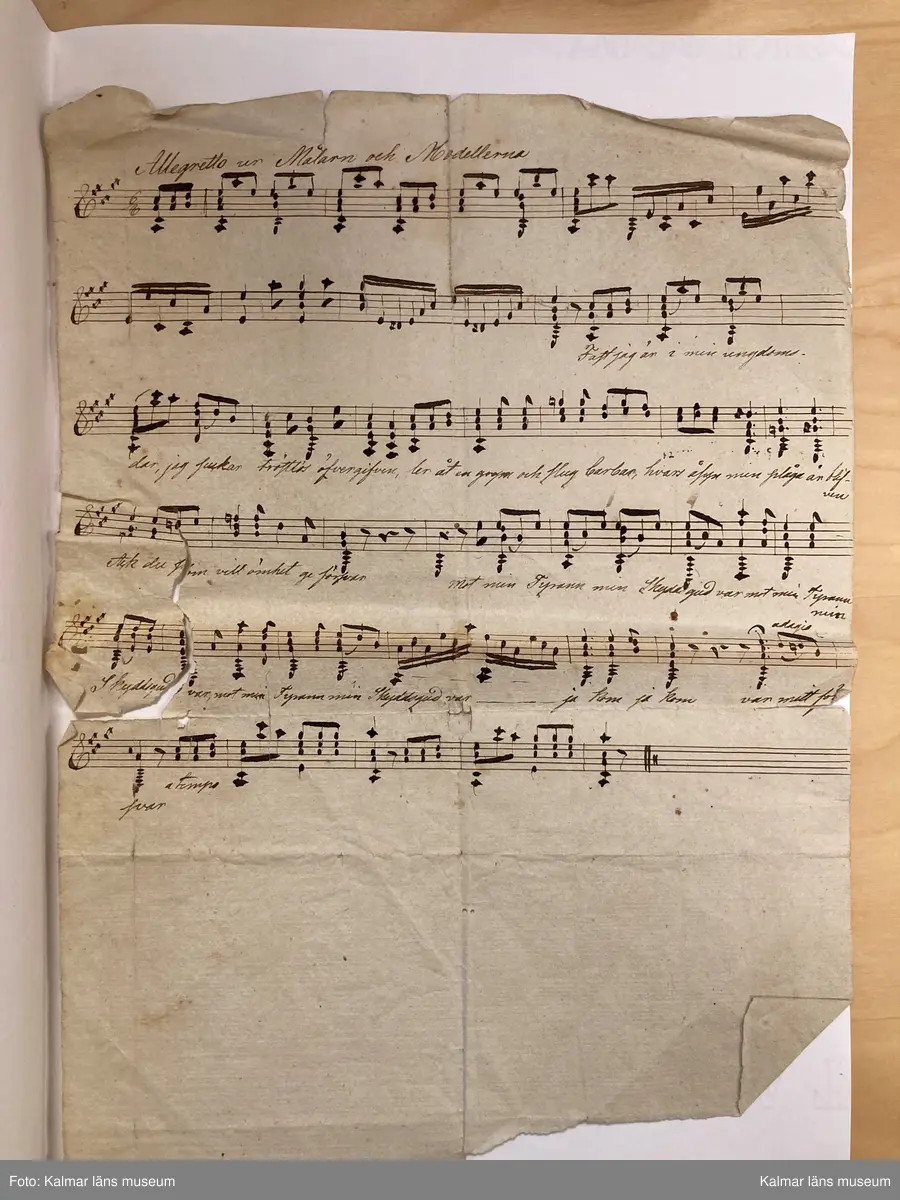 Allegretto ur Målarn och Modellerna
Fast jag är i min ungdoms-
dar, jag suckar tröstlös öfvergifven, ler åt en grym och slug barbar, hvars åsyn min plåga är blif-
ven
Ack du som vill ömhet ge försvar mot min Tyrann min Skyddsgud var mot min Tyrann
min
adagio
Skyddsgud var mot min Tyrann min Skyddsgud var ja kom ja kom var mitt för
a tempo
svar
Foto: Kalmar läns museum
Kalmar läns museum